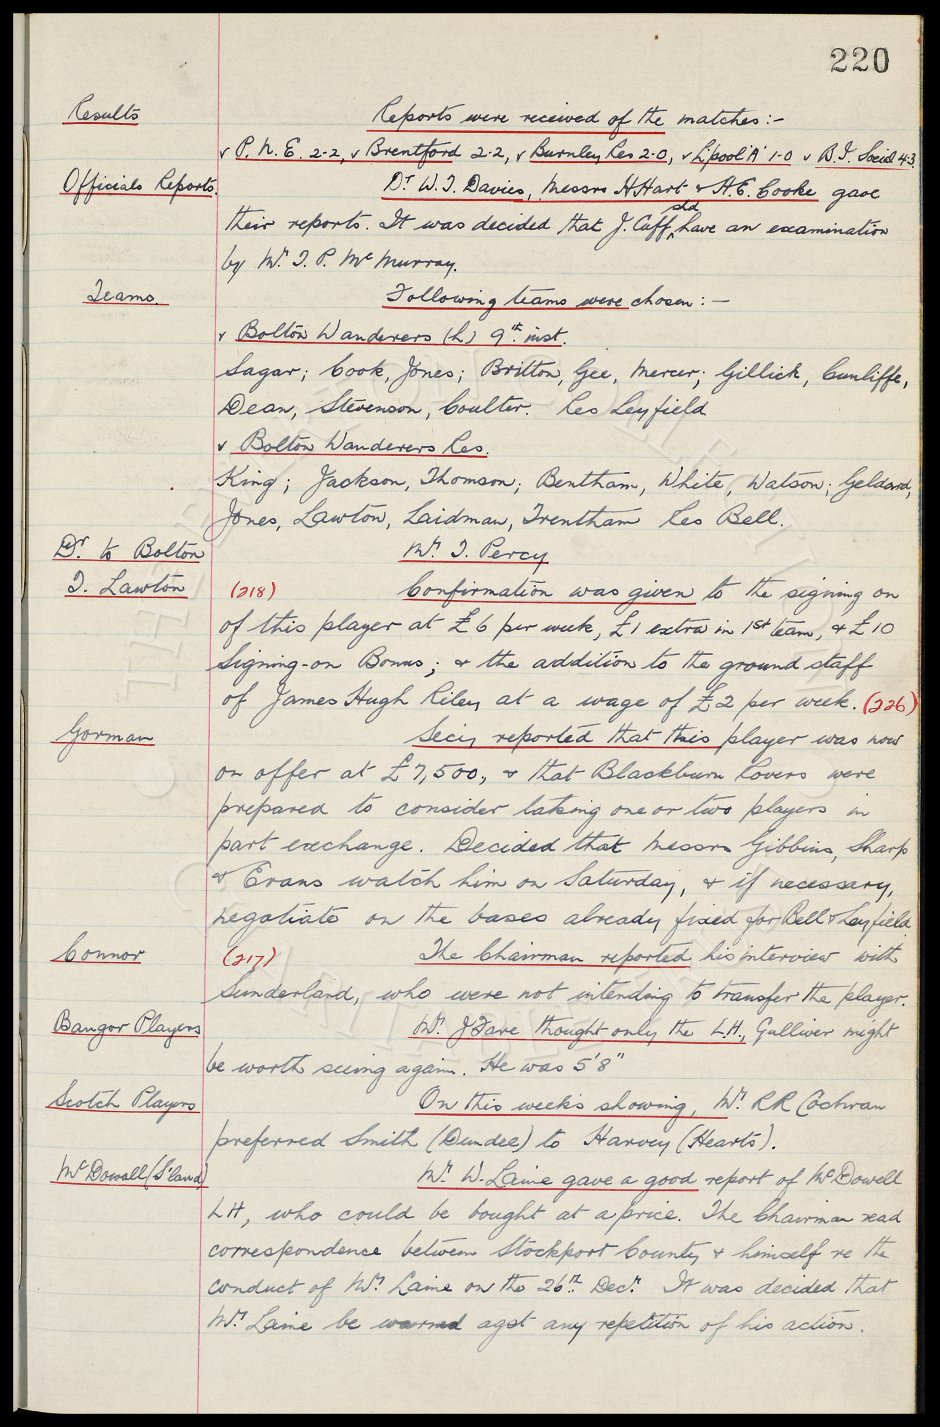 220
Results Reports were received of the matches :-
v P.N.E. 2-2, v Brentford 2-2, v Burnley Res 2-0, v L'pool 'A' 1-0 v B.I. Social 4-3
Officials Reports. Dr W.J. Davies, Messrs H Hart & A.E. Cooke gave
their reports. It was decided that J. Cuff shd have an examination
by Mr. T. P. McMurray.
Teams. Following teams were chosen :-
v Bolton Wanderers (h) 9th inst.
Sagar; Cook, Jones; Britton, Gee, Mercer; Gillick, Cunliffe,
Dean, Stevenson, Coulter. Res Leyfield
v Bolton Wanderers Res.
King; Jackson, Thomson; Bentham, White, Watson; Geldard,
Jones, Lawton, Laidman, Trentham Res Bell.
Dr. to Bolton Mr. J. Percy
T. Lawton (218) Confirmation was given to the signing on
of this player at £6 per week, £1 extra in 1st team, & £10
Signing-on Bonus; & the addition to the ground staff
of James Hugh Riley at a wage of £2 per week. (226)
Gorman Secy reported that this player was now
on offer at £7,500, & that Blackburn Rovers were
prepared to consider taking one or two players in
part exchange. Decided that Messrs Gibbins, Sharp
& Evans watch him on Saturday, & if necessary,
negotiate on the bases already fixed for Bell & Leyfield
Connor (217) The Chairman reported his interview with
Sunderland, who were not intending to transfer the player.
Bangor Players Mr. J Fare thought only the L.H., Gulliver might
be worth seeing again. He was 5'8"
Scotch Players On this week's showing, Mr. RR Cochran
preferred Smith (Dundee) to Harvey (Hearts).
McDowall (S'land) Mr. W. Laine gave a good report of McDowell
LH, who could be bought at a price. The Chairman read
correspondence between Stockport County & himself re the
conduct of Mr. Laine on the 26th. Decr. It was decided that
Mr. Laine be warned agst any repetition of his action.